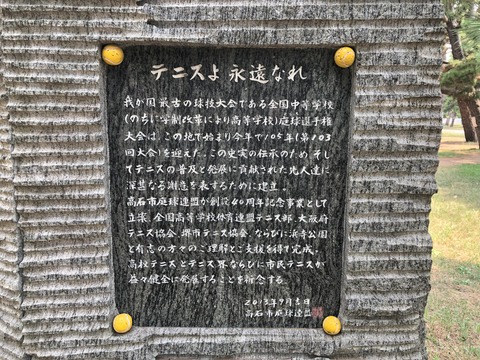 テニスよ 永遠なれ
我が国最古の球技大会である全国中等学校
(のちに学制改革により高等学校)庭球選手権
大会は、この地で始まり今年で105年(第103
回大会)を迎えた。この史実の伝承のため、そし
てテニスの普及と発展に貢献された先人達に
深甚なる謝意を表するために建立。
高石市庭球連盟が創設40周年記念事業として
立案、全国高等学校体育連盟テニス部、大阪府
テニス協会、堺市テニス協会、ならびに浜寺公園
と有志の方々のご理解とご支援を得て完成。
高校テニスとテニス界ならびに市民テニスが
益々健全に発展することを祈念する。
2013年9月吉日
高石市庭球連盟